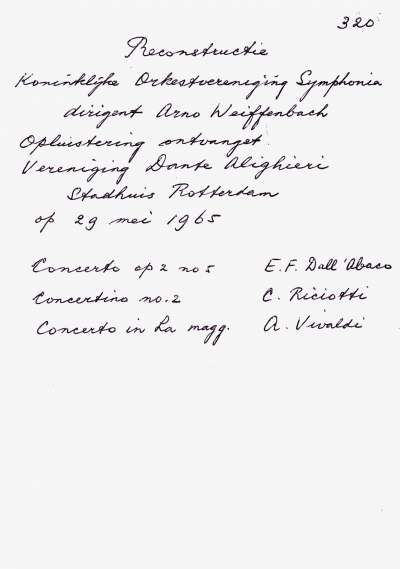 320
Reconstructie
Koninklijke Orkestvereniging Symphonia
dirigent Arno Weiffenbach
Opluistering ontvangst
Vereniging Dante Alighieri
Stadhuis Rotterdam
op 29 mei 1965
Concerto op 2 no 5 E.F. Dall'Abaco
Concertino no. 2 C. Riciotti
Concerto in La magg. A. Vivaldi